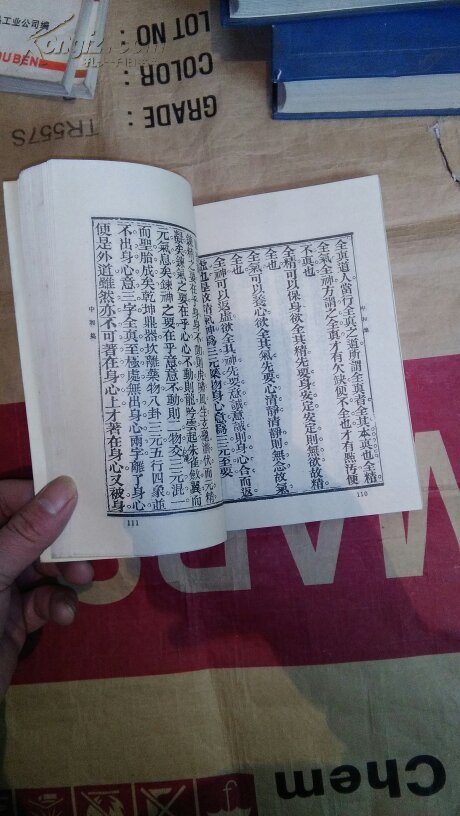 品工业公司编
OU BENG
Kongfz.com
LOT NO :
COLOR :
GRADE :
TR557S
全真道人當行全真之道。所謂全真者。全其本真也。全精
全氣全神方謂之全真。才有欠缺便不全也。才有點污便
不真也。
全精可以保身。欲全其精。先要身安定。安定則無欲。故精
全也。
全氣可以養心。欲全其氣。先要心清靜。清靜則無念。故氣
全也。
全神可以返虛。欲全其神。先要意誠。意誠則身心合而返
虛也。是故精氣神爲三元藥物。身心意爲三元至要。
中和集
110
鍊精之要在乎身。身不動則虎嘯風生。玄龜潛伏。而元精
凝矣。鍊氣之要在乎心。心不動則龍吟雲起。朱雀斂翼。而
元氣息矣。鍊神之要在乎意。意不動則二物交。三元混一。
而聖胎成矣。乾坤鼎器。坎離藥物。八卦三元。五行四象。並
不出身心意三字。全真至極處。無出身心兩字。離了身心。
便是外道。雖然。亦不可著在身心上。才著在身心。又被身
中和集
111
Chem